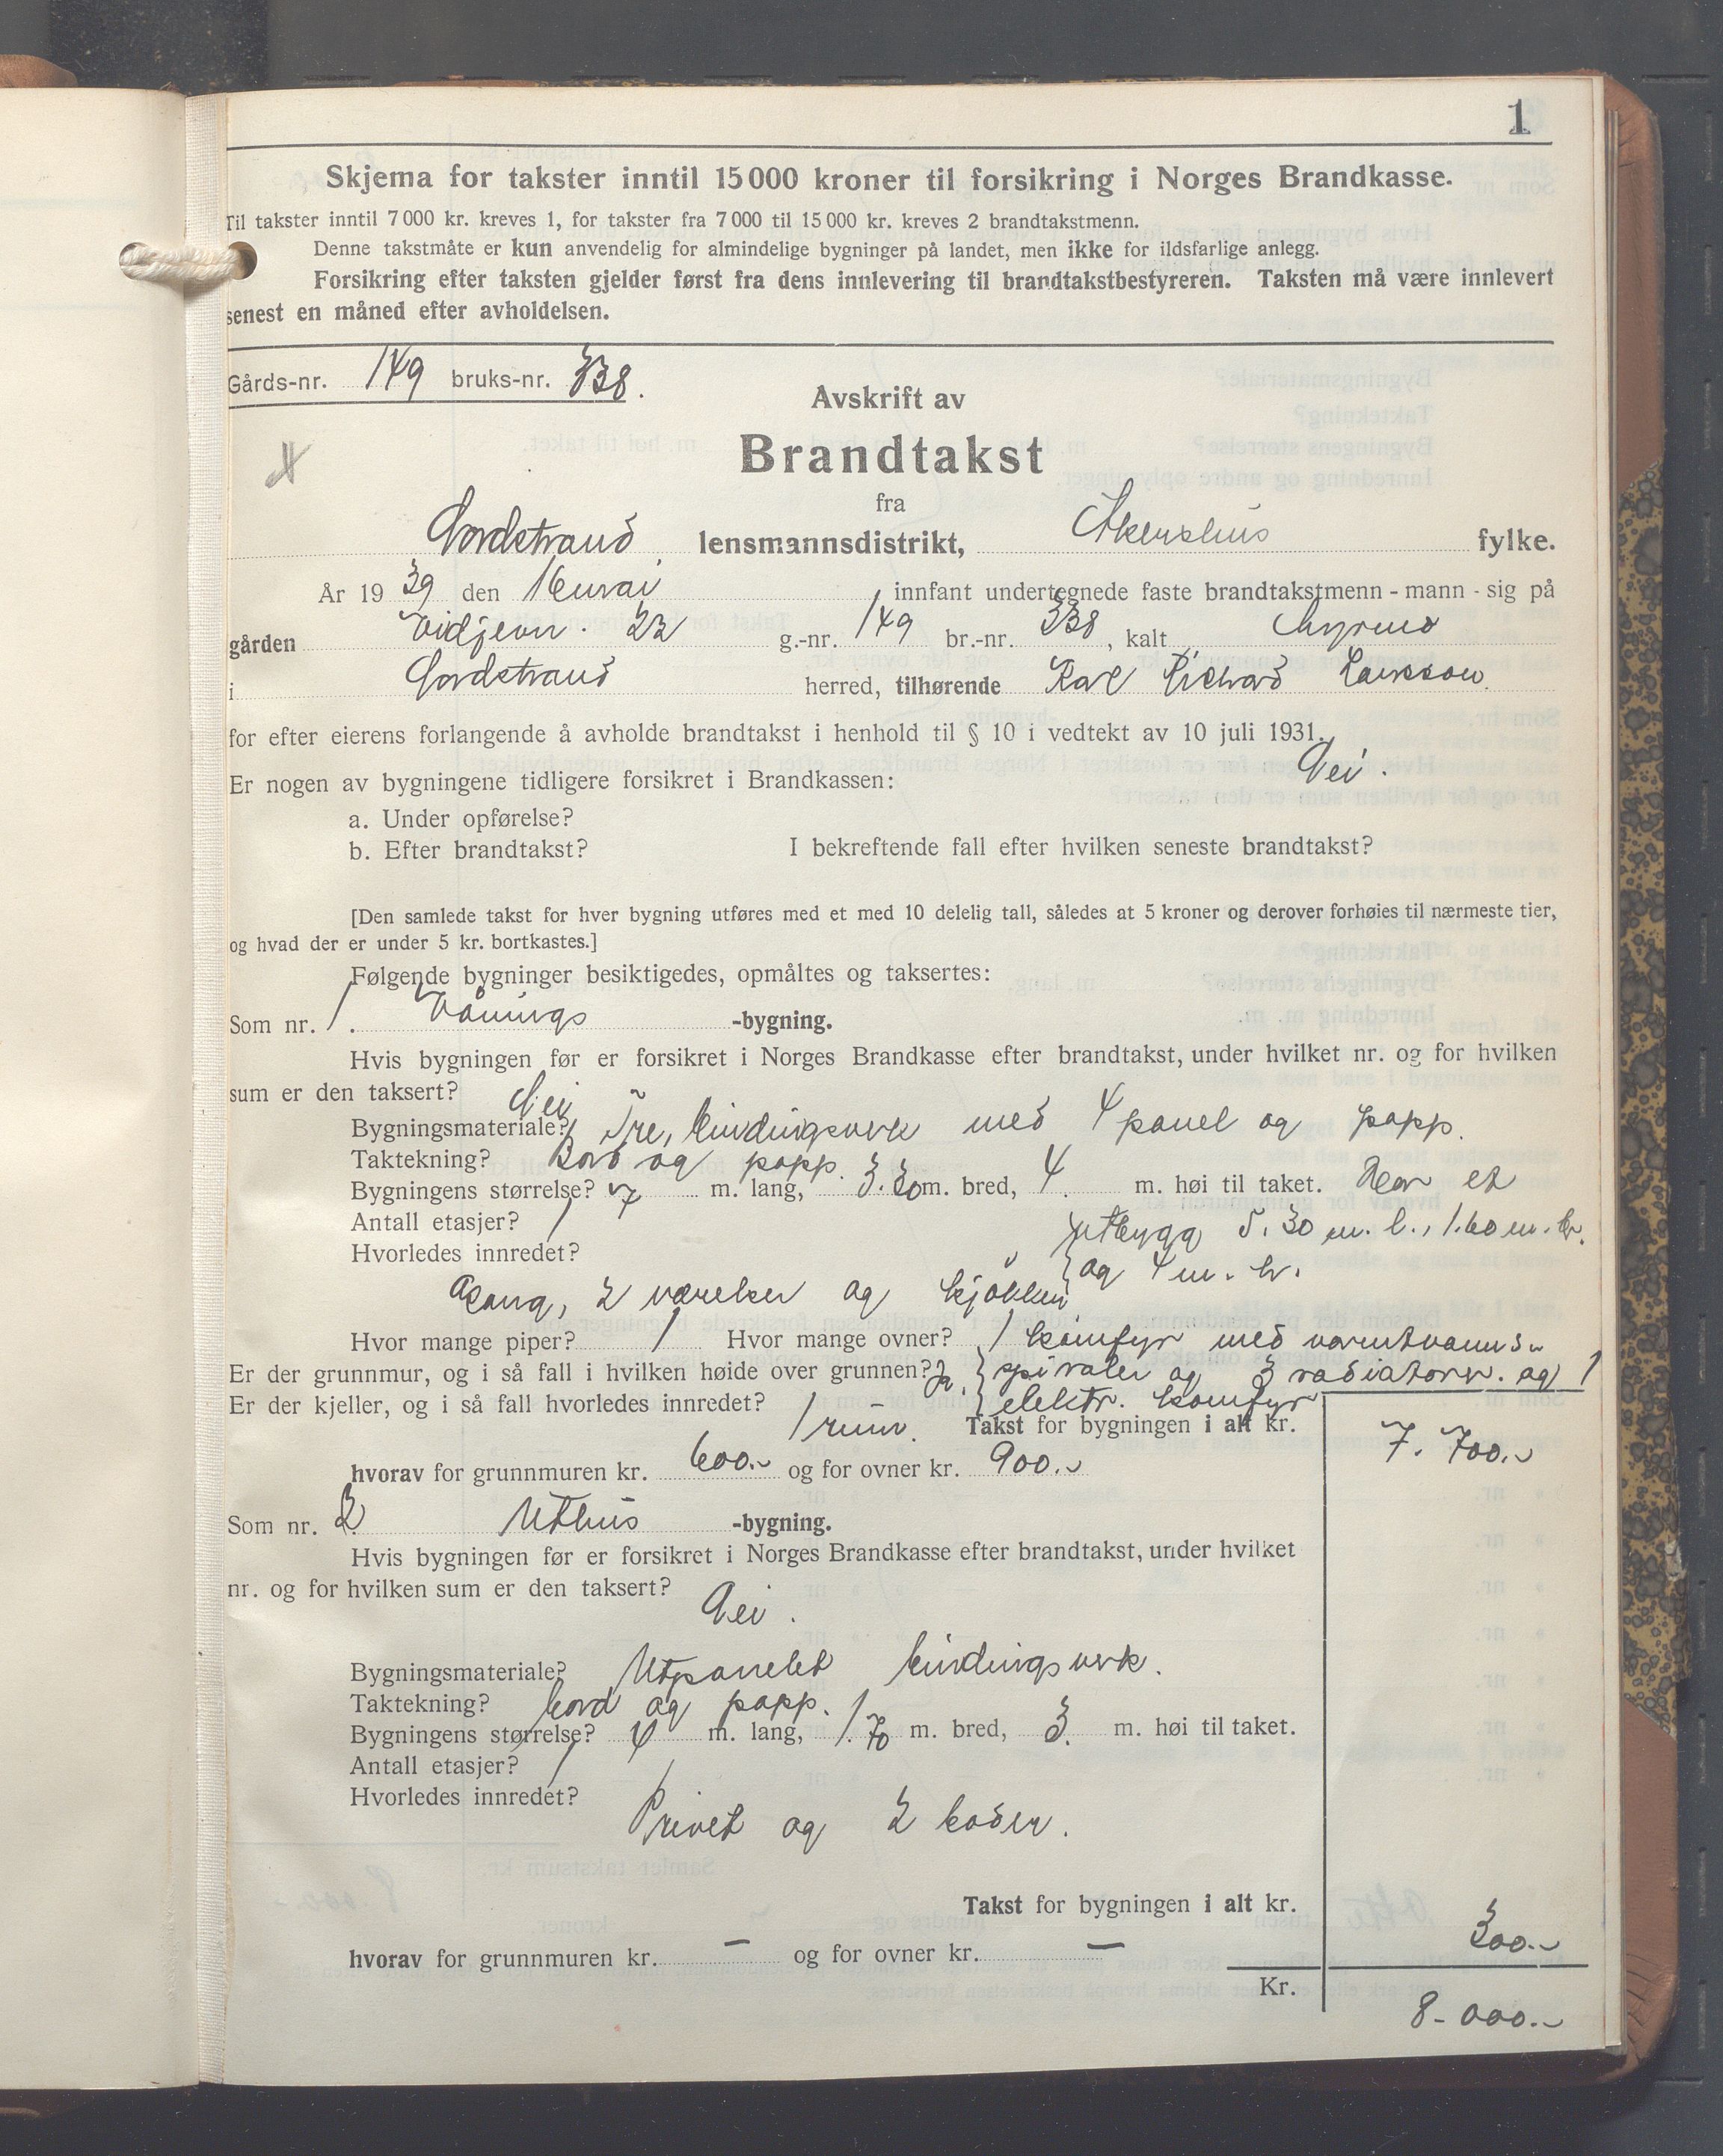 1
Skjema for takster inntil 15 000 kroner til forsikring i Norges Brandkasse.
Til takster inntil 7 000 kr. kreves 1, for takster fra 7 000 til 15 000 kr. kreves 2 brandtakstmenn.
Denne takstmåte er kun anvendelig for almindelige bygninger på landet, men ikke for ildsfarlige anlegg.
Forsikring efter taksten gjelder først fra dens innlevering til brandtakstbestyreren. Taksten må være innlevert
senest en måned efter avholdelsen.
Gårds-nr. 149 bruks-nr. 338.
Avskrift av
Brandtakst
fra
Nordstrand lensmannsdistrikt, Akershus fylke.
År 1939 den 16 mai innfant undertegnede faste brandtakstmenn - mann - sig på
gården 22 g.-nr. 149 br.-nr. 338, kalt
i Nordstrand herred, tilhørende Karl Richard Larsson.
for efter eierens forlangende å avholde brandtakst i henhold til § 10 i vedtekt av 10 juli 1931.
Er nogen av bygningene tidligere forsikret i Brandkassen: Nei.
a. Under opførelse?
b. Efter brandtakst? I bekreftende fall efter hvilken seneste brandtakst?
[Den samlede takst for hver bygning utføres med et med 10 delelig tall, således at 5 kroner og derover forhøies til nærmeste tier,
og hvad der er under 5 kr. bortkastes.]
Følgende bygninger besiktigedes, opmåltes og taksertes:
Som nr. 1. Vånings -bygning.
Hvis bygningen før er forsikret i Norges Brandkasse efter brandtakst, under hvilket nr. og for hvilken
sum er den taksert? Nei
Bygningsmateriale? Tre, bindingsverk med 4 panel og papp.
Taktekning? Bord og papp.
Bygningens størrelse? 7 m. lang, 3.30 m. bred, 4. m. høi til taket. Har et
Antall etasjer? 1 utbygg 5.30 m. l., 1.60 m. br.
Hvorledes innredet? og 4 m. h.
Gang, 2 værelser og kjøkken
Hvor mange piper? 1 Hvor mange ovner? 1 komfyr med varmtvanns-
Er der grunnmur, og i så fall i hvilken høide over grunnen? Ja, spiraler og 3 radiatorer. og 1
Er der kjeller, og i så fall hvorledes innredet? elektr. komfyr
1 rum. Takst for bygningen i alt kr. 7.700.-
hvorav for grunnmuren kr. 600.- og for ovner kr. 900.-
Som nr. 2. Uthus -bygning.
Hvis bygningen før er forsikret i Norges Brandkasse efter brandtakst, under hvilket
nr. og for hvilken sum er den taksert? Nei.
Bygningsmateriale? Utpanelet bindingsverk.
Taktekning? bord og papp.
Bygningens størrelse? 4 m. lang, 1.70 m. bred, 3. m. høi til taket.
Antall etasjer? 1
Hvorledes innredet?
Privet og 2 boder.
Takst for bygningen i alt kr. 300.-
hvorav for grunnmuren kr. — og for ovner kr. —
Kr. 8-000.-